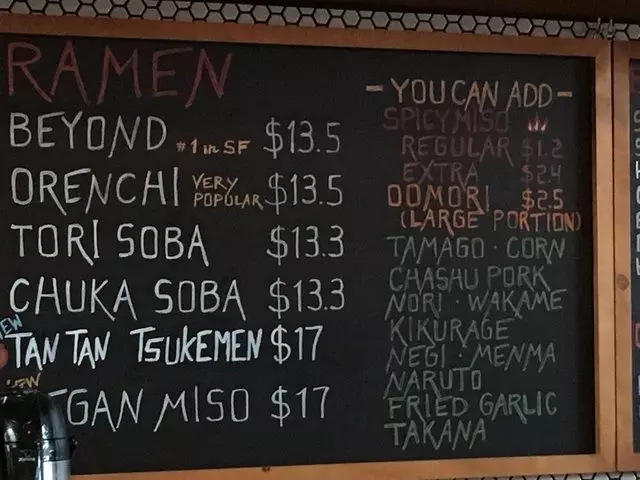 RAMEN
BEYOND #1 in SF $13.5
ORENCHI VERY POPULAR $13.5
TORI SOBA $13.3
CHUKA SOBA $13.3
NEW
TAN TAN TSUKEMEN $17
NEW
GAN MISO $17
- YOU CAN ADD -
SPICY MISO
REGULAR $1.2
EXTRA $2.4
OOMORI $2.5
(LARGE PORTION)
TAMAGO · CORN
CHASHU PORK
NORI · WAKAME
KIKURAGE
NEGI · MENMA
NARUTO
FRIED GARLIC
TAKANA